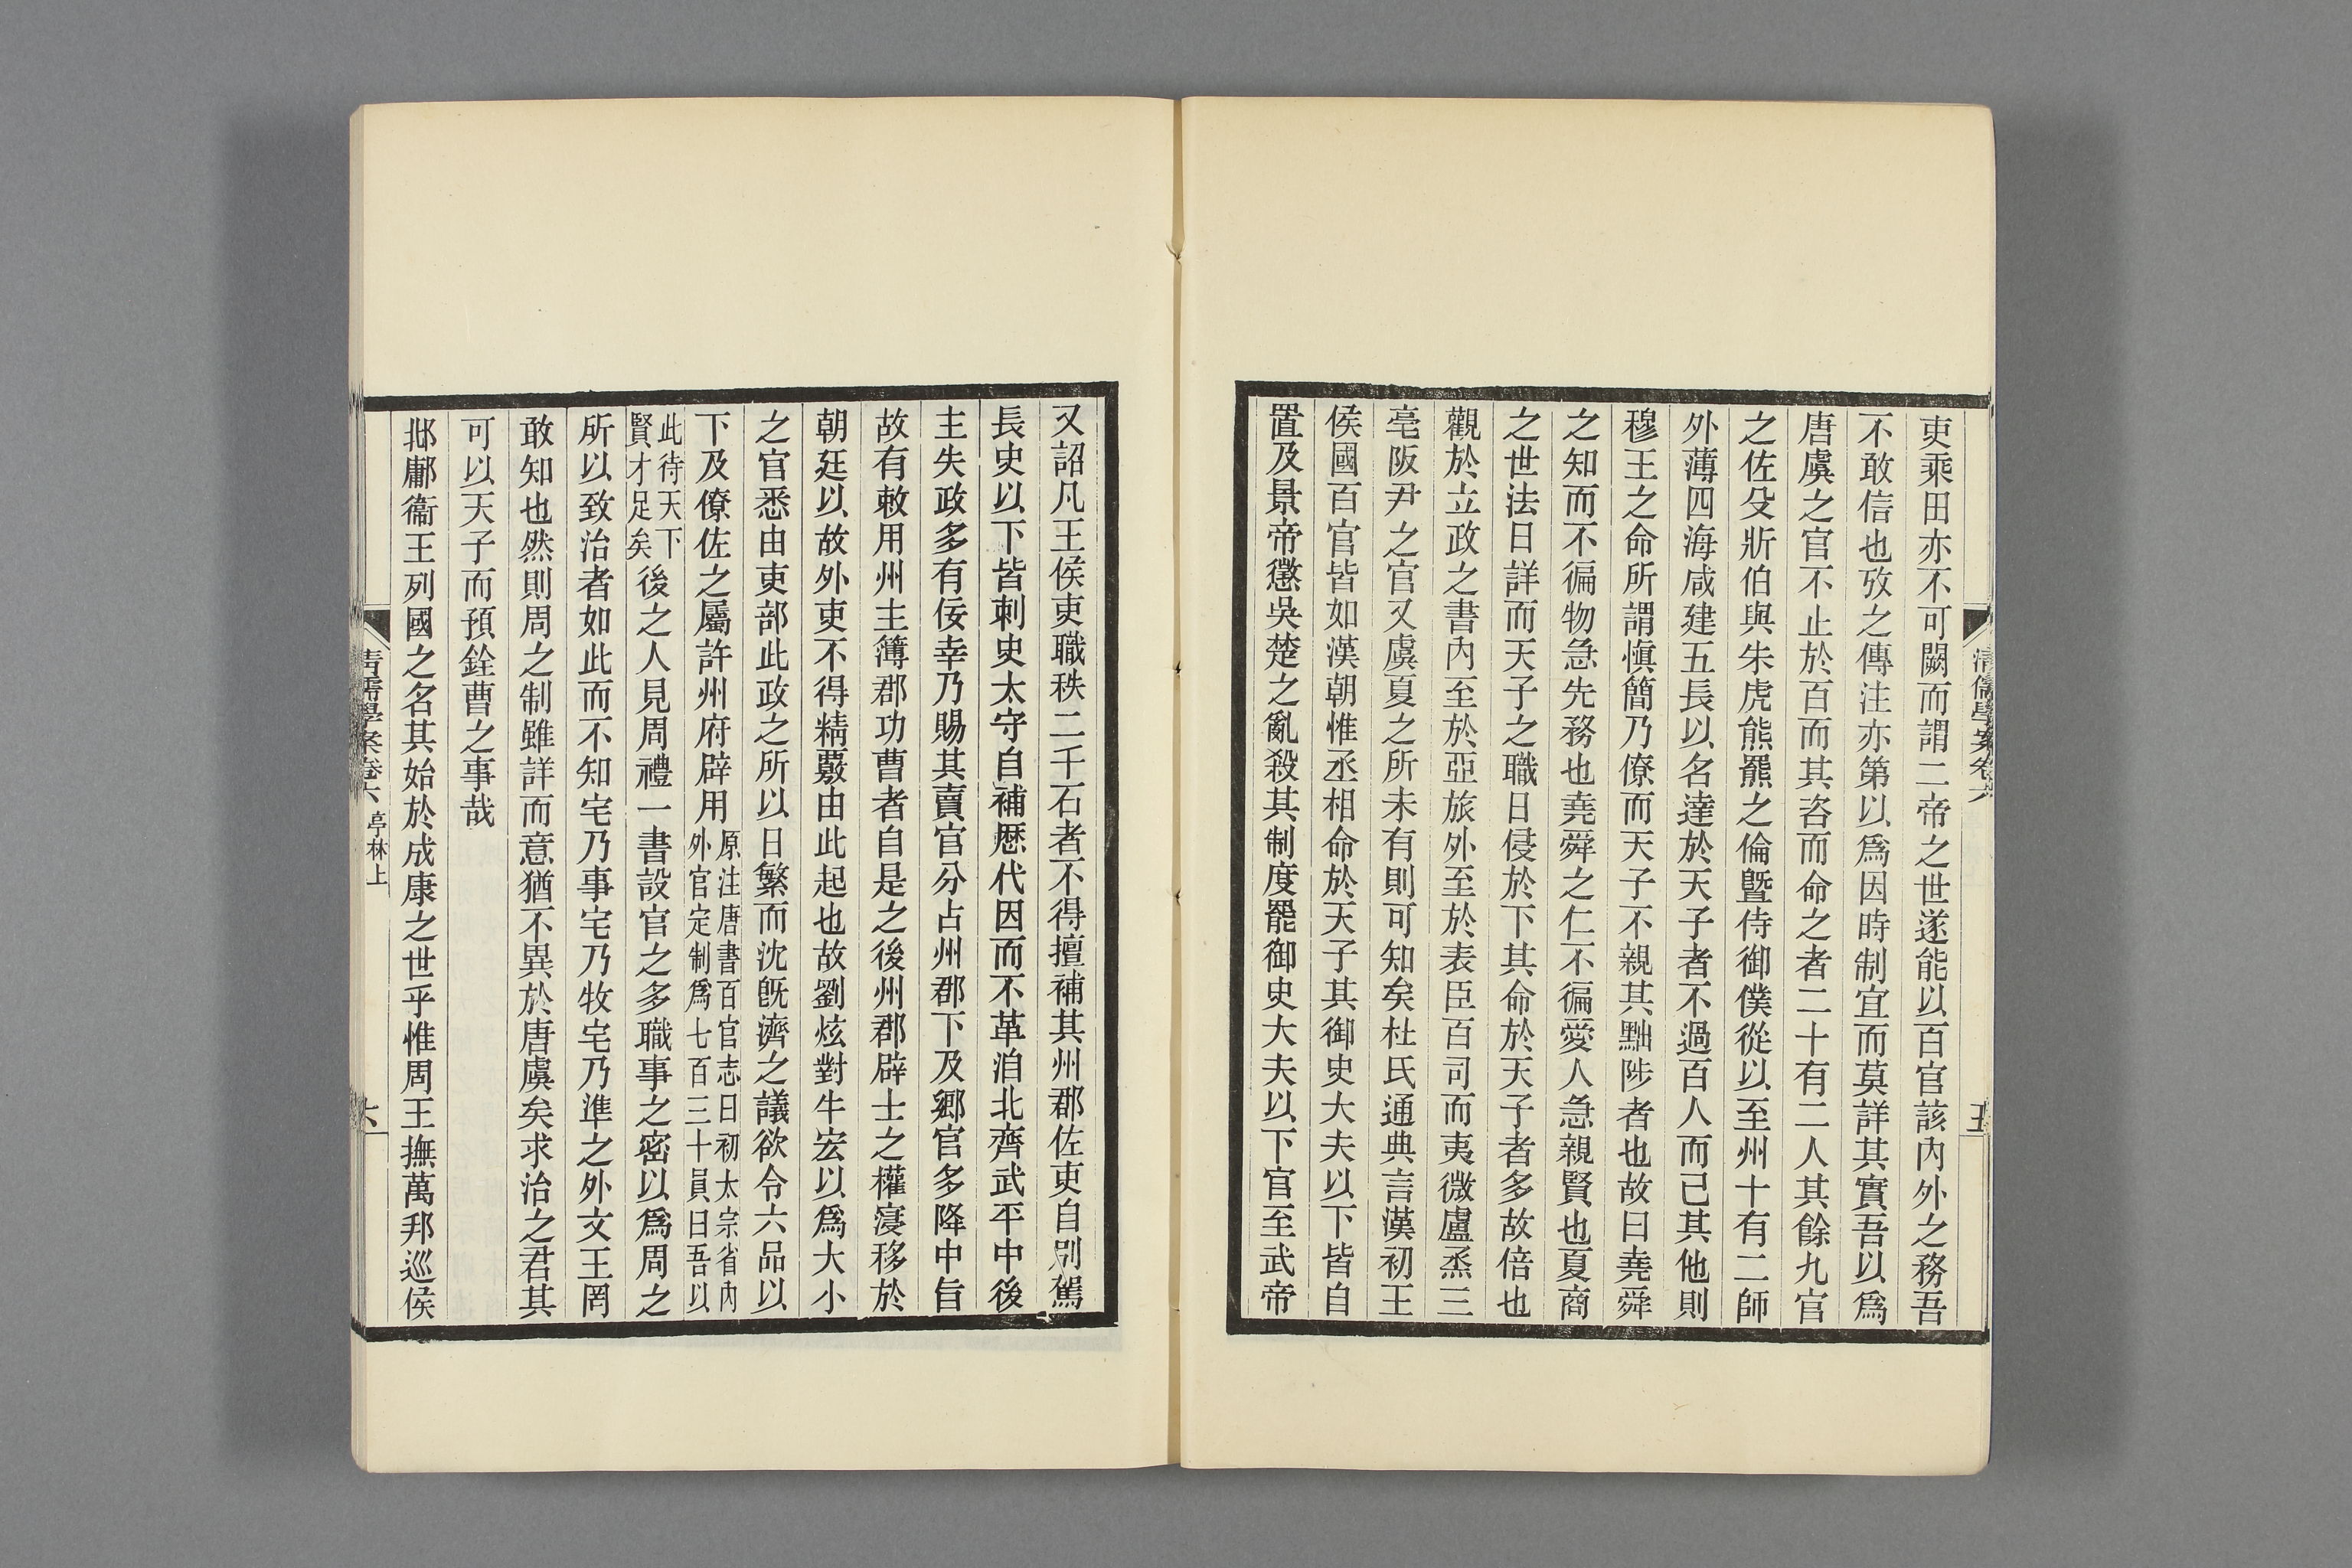 清儒學案卷六
五
吏乘田亦不可闕而謂二帝之世遂能以百官該內外之務吾
不敢信也攷之傳注亦第以爲因時制宜而莫詳其實吾以爲
唐虞之官不止於百而其咨而命之者二十有二人其餘九官
之佐殳斨伯與朱虎熊羆之倫曁侍御僕從以至州十有二師
外薄四海咸建五長以名達於天子者不過百人而已其他則
穆王之命所謂愼簡乃僚而天子不親其黜陟者也故曰堯舜
之知而不徧物急先務也堯舜之仁不徧愛人急親賢也夏商
之世法日詳而天子之職日侵於下其命於天子者多故倍也
觀於立政之書內至於亞旅外至於表臣百司而夷微盧烝三
亳阪尹之官又虞夏之所未有則可知矣杜氏通典言漢初王
侯國百官皆如漢朝惟丞相命於天子其御史大夫以下皆自
置及景帝懲吳楚之亂殺其制度罷御史大夫以下官至武帝
又詔凡王侯吏職秩二千石者不得擅補其州郡佐吏自別駕
長史以下皆刺史太守自補歷代因而不革洎北齊武平中後
主失政多有佞幸乃賜其賣官分占州郡下及鄉官多降中旨
故有敕用州主簿郡功曹者自是之後州郡辟士之權寖移於
朝廷以故外吏不得精覈由此起也故劉炫對牛宏以爲大小
之官悉由吏部此政之所以日繁而沈旣濟之議欲令六品以
下及僚佐之屬許州府辟用
原注唐書百官志曰初太宗省內
外官定制爲七百三十員曰吾以
此待天下
賢才足矣
後之人見周禮一書設官之多職事之密以爲周之
所以致治者如此而不知宅乃事宅乃牧宅乃準之外文王罔
敢知也然則周之制雖詳而意猶不異於唐虞矣求治之君其
可以天子而預銓曹之事哉
邶鄘衞王列國之名其始於成康之世乎惟周王撫萬邦巡侯
清儒學案卷六 亭林上
六